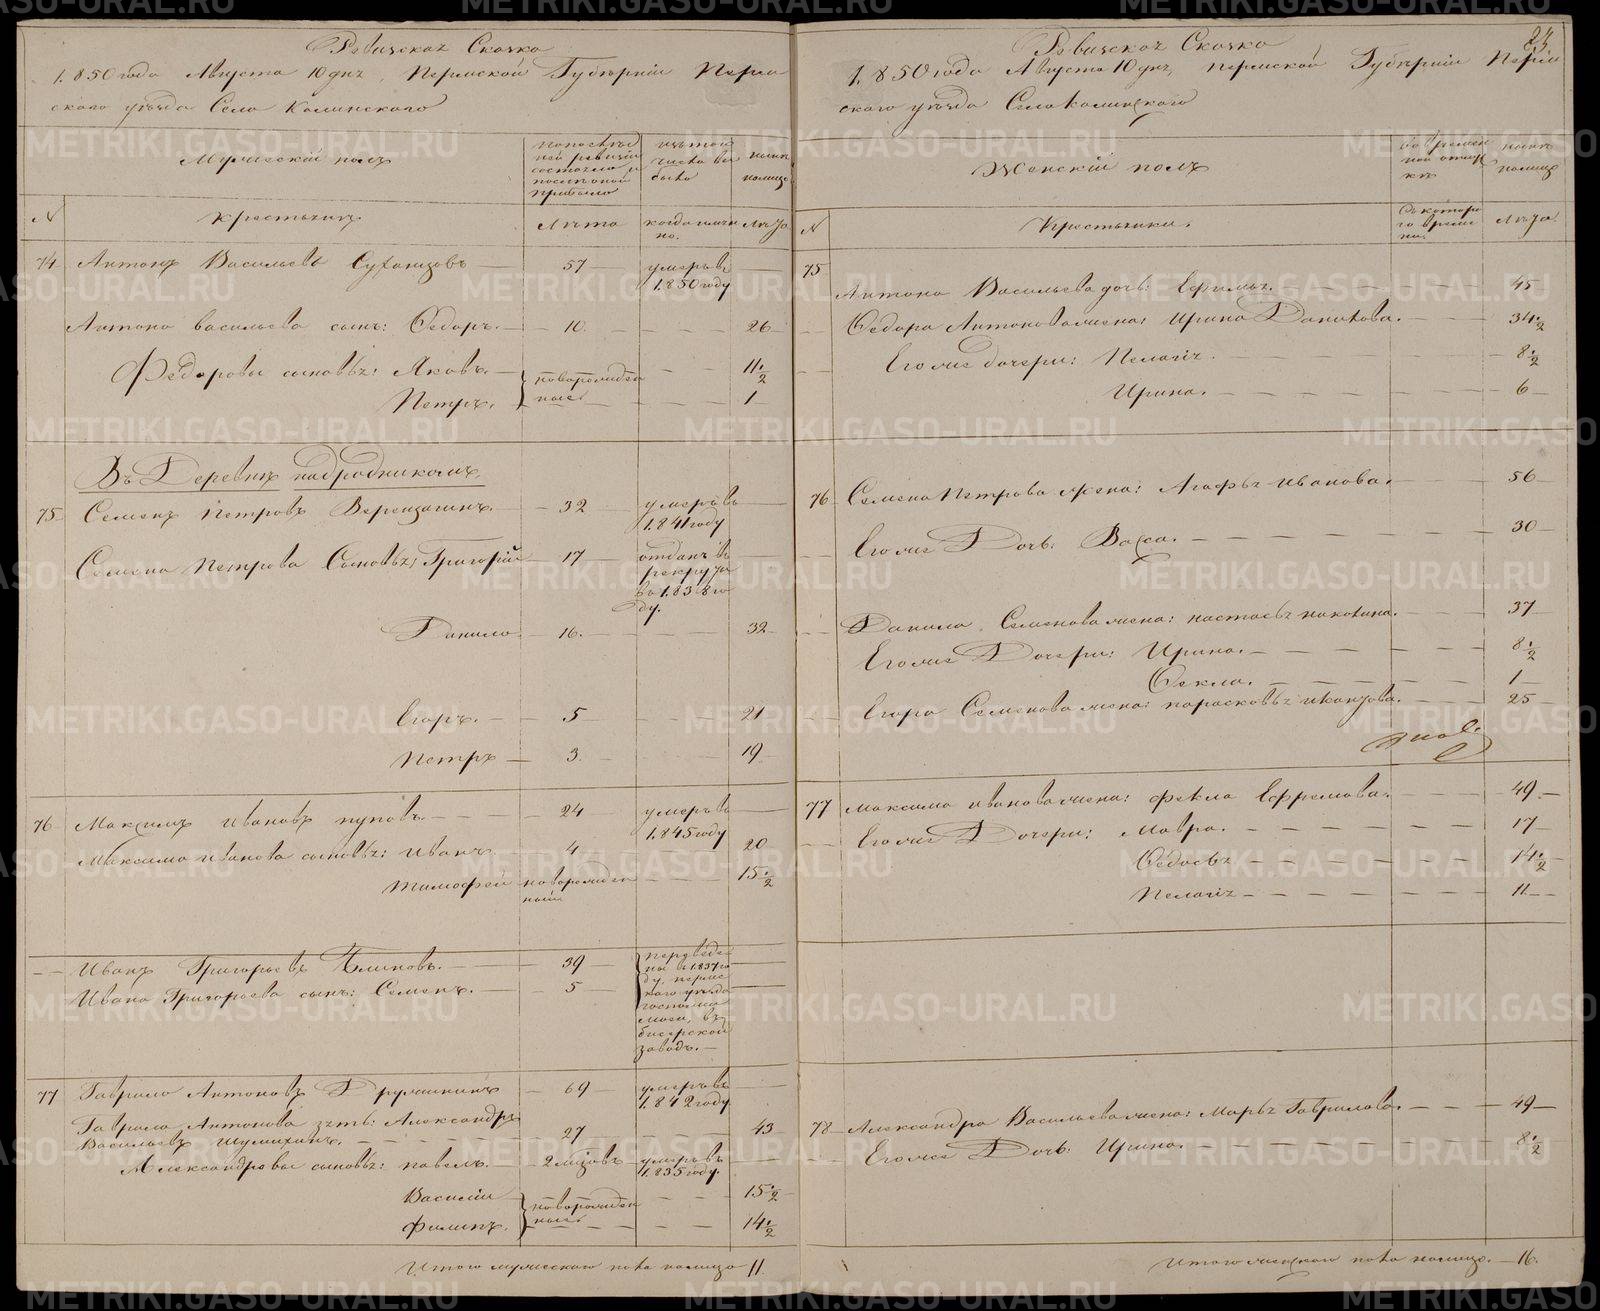 Ревизская Сказка
1850 года Августа 10 дня, Пермской Губерніи Перм
скаго уѣзда Село Калинскаго
Мужескій полъ
по послѣд
ней ревизіи
состояло и
послѣ оной
прибыло
изъ того
числа вы
было
нынѣ
налицо
№
Крестьянъ
Лѣта
когда имян
но.
Лѣта
74 Антонъ Васильевъ 57 умеръ въ
1850 году
Антона Васильева сынъ: Федоръ. 10. 26
Федоровы сыновья: Яковъ. новорожден
ные 11 1/2
Петръ. 1
Въ Деревнѣ надродникомъ
75 Семенъ Петровъ Верещагинъ. 32 умеръ въ
1841 году
Семена Петрова Сыновья: Григорій 17 отданъ въ
рекруты
въ 1838 го
ду.
Данило 16. 32
Егоръ. 5 21
Петръ 3. 19
76 Максимъ Ивановъ пуповъ. 24 умеръ въ
1845 году
Максима Иванова сыновья: Иванъ 4 20
Тимофей новорожден
ный 15 1/2
Иванъ Григорьевъ 39 переведе
ны въ 1837 го
ду, перм
скаго уѣзда
въ
бисерской
заводъ.
Ивана Григорьева сынъ: Семенъ. 5
77 Гаврило Антоновъ Дружининъ 69 умеръ въ
1842 году
Гаврила Антонова зять: Александръ
Васильевъ Шумихинъ. 27 43
Александровы сыновья: павелъ. 2 мѣсяцовъ умеръ въ
1835 году.
Василій новорожден
ные 15 1/2
Филипъ. 14 1/2
Итого мужескаго пола налицо 11
24
Ревизская Сказка
1850 года Августа 10 дня, пермской Губерніи Перм
скаго уѣзда Село Калинскаго
Женскій полъ
во времен
ной отлуч
кѣ
нынѣ
налицо
№
Крестьянки.
Съ котора
го време
ни.
Лѣта.
75
Антона Васильева дочь: Ефимья. 45
Федора Антонова жена: Ирина Данилова. 34 1/2
Его же дочери: Пелагія. 8 1/2
Ирина. 6
76 Семена Петрова жена: Агафья Иванова. 56
Его же Дочь: Васса. 30
Данила Семенова жена: настасья 37
Его же Дочери: Ирина. 8 1/2
Фекла. 1
Егора Семенова жена: парасковья 25
77 Максима Иванова жена: фекла Ефремова. 49
Его же Дочери: Мавра. 17
Федосья 14 1/2
Пелагія 11
78 Александра Васильева жена: Марья Гаврилова. 49
Его же Дочь: Ирина. 8 1/2
Итого женскаго пола налицо. 16.
METRIKI.GASO-URAL.RU